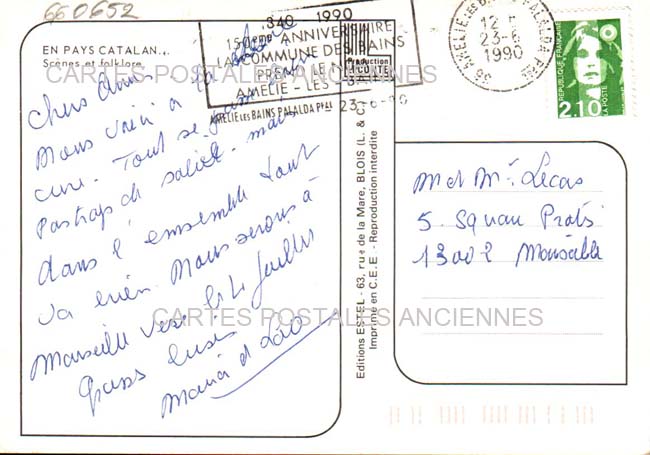 660652
EN PAYS CATALAN...
Scènes et folklore
1840 1990
150ème ANNIVERSAIRE
LA COMMUNE DES BAINS
PREND LE NOM
AMELIE - LES - BAINS
AMELIE LES BAINS PALALDA Ppal 23-6-90
66 AMELIE LES BAINS PALALDA Ppal
12 H
23-6
1990
REPUBLIQUE FRANCAISE
2,10
LA POSTE
CARTES POSTALES ANCIENNES
Chers Amis
Nous voici à la
cure. Tout se
pas trop de soleil. mais
dans l'ensemble tout
va bien. Nous serons à
Marseille vers le 14 Juillet
Gross bises
Maria et Léo
Editions ESTEL - 63, rue de la Mare, BLOIS (L. & C.)
Imprimé en C.E.E - Reproduction interdite
Production
M et Me Lecas
5. Square Prats
13002 Marseille
CARTES POSTALES ANCIENNES